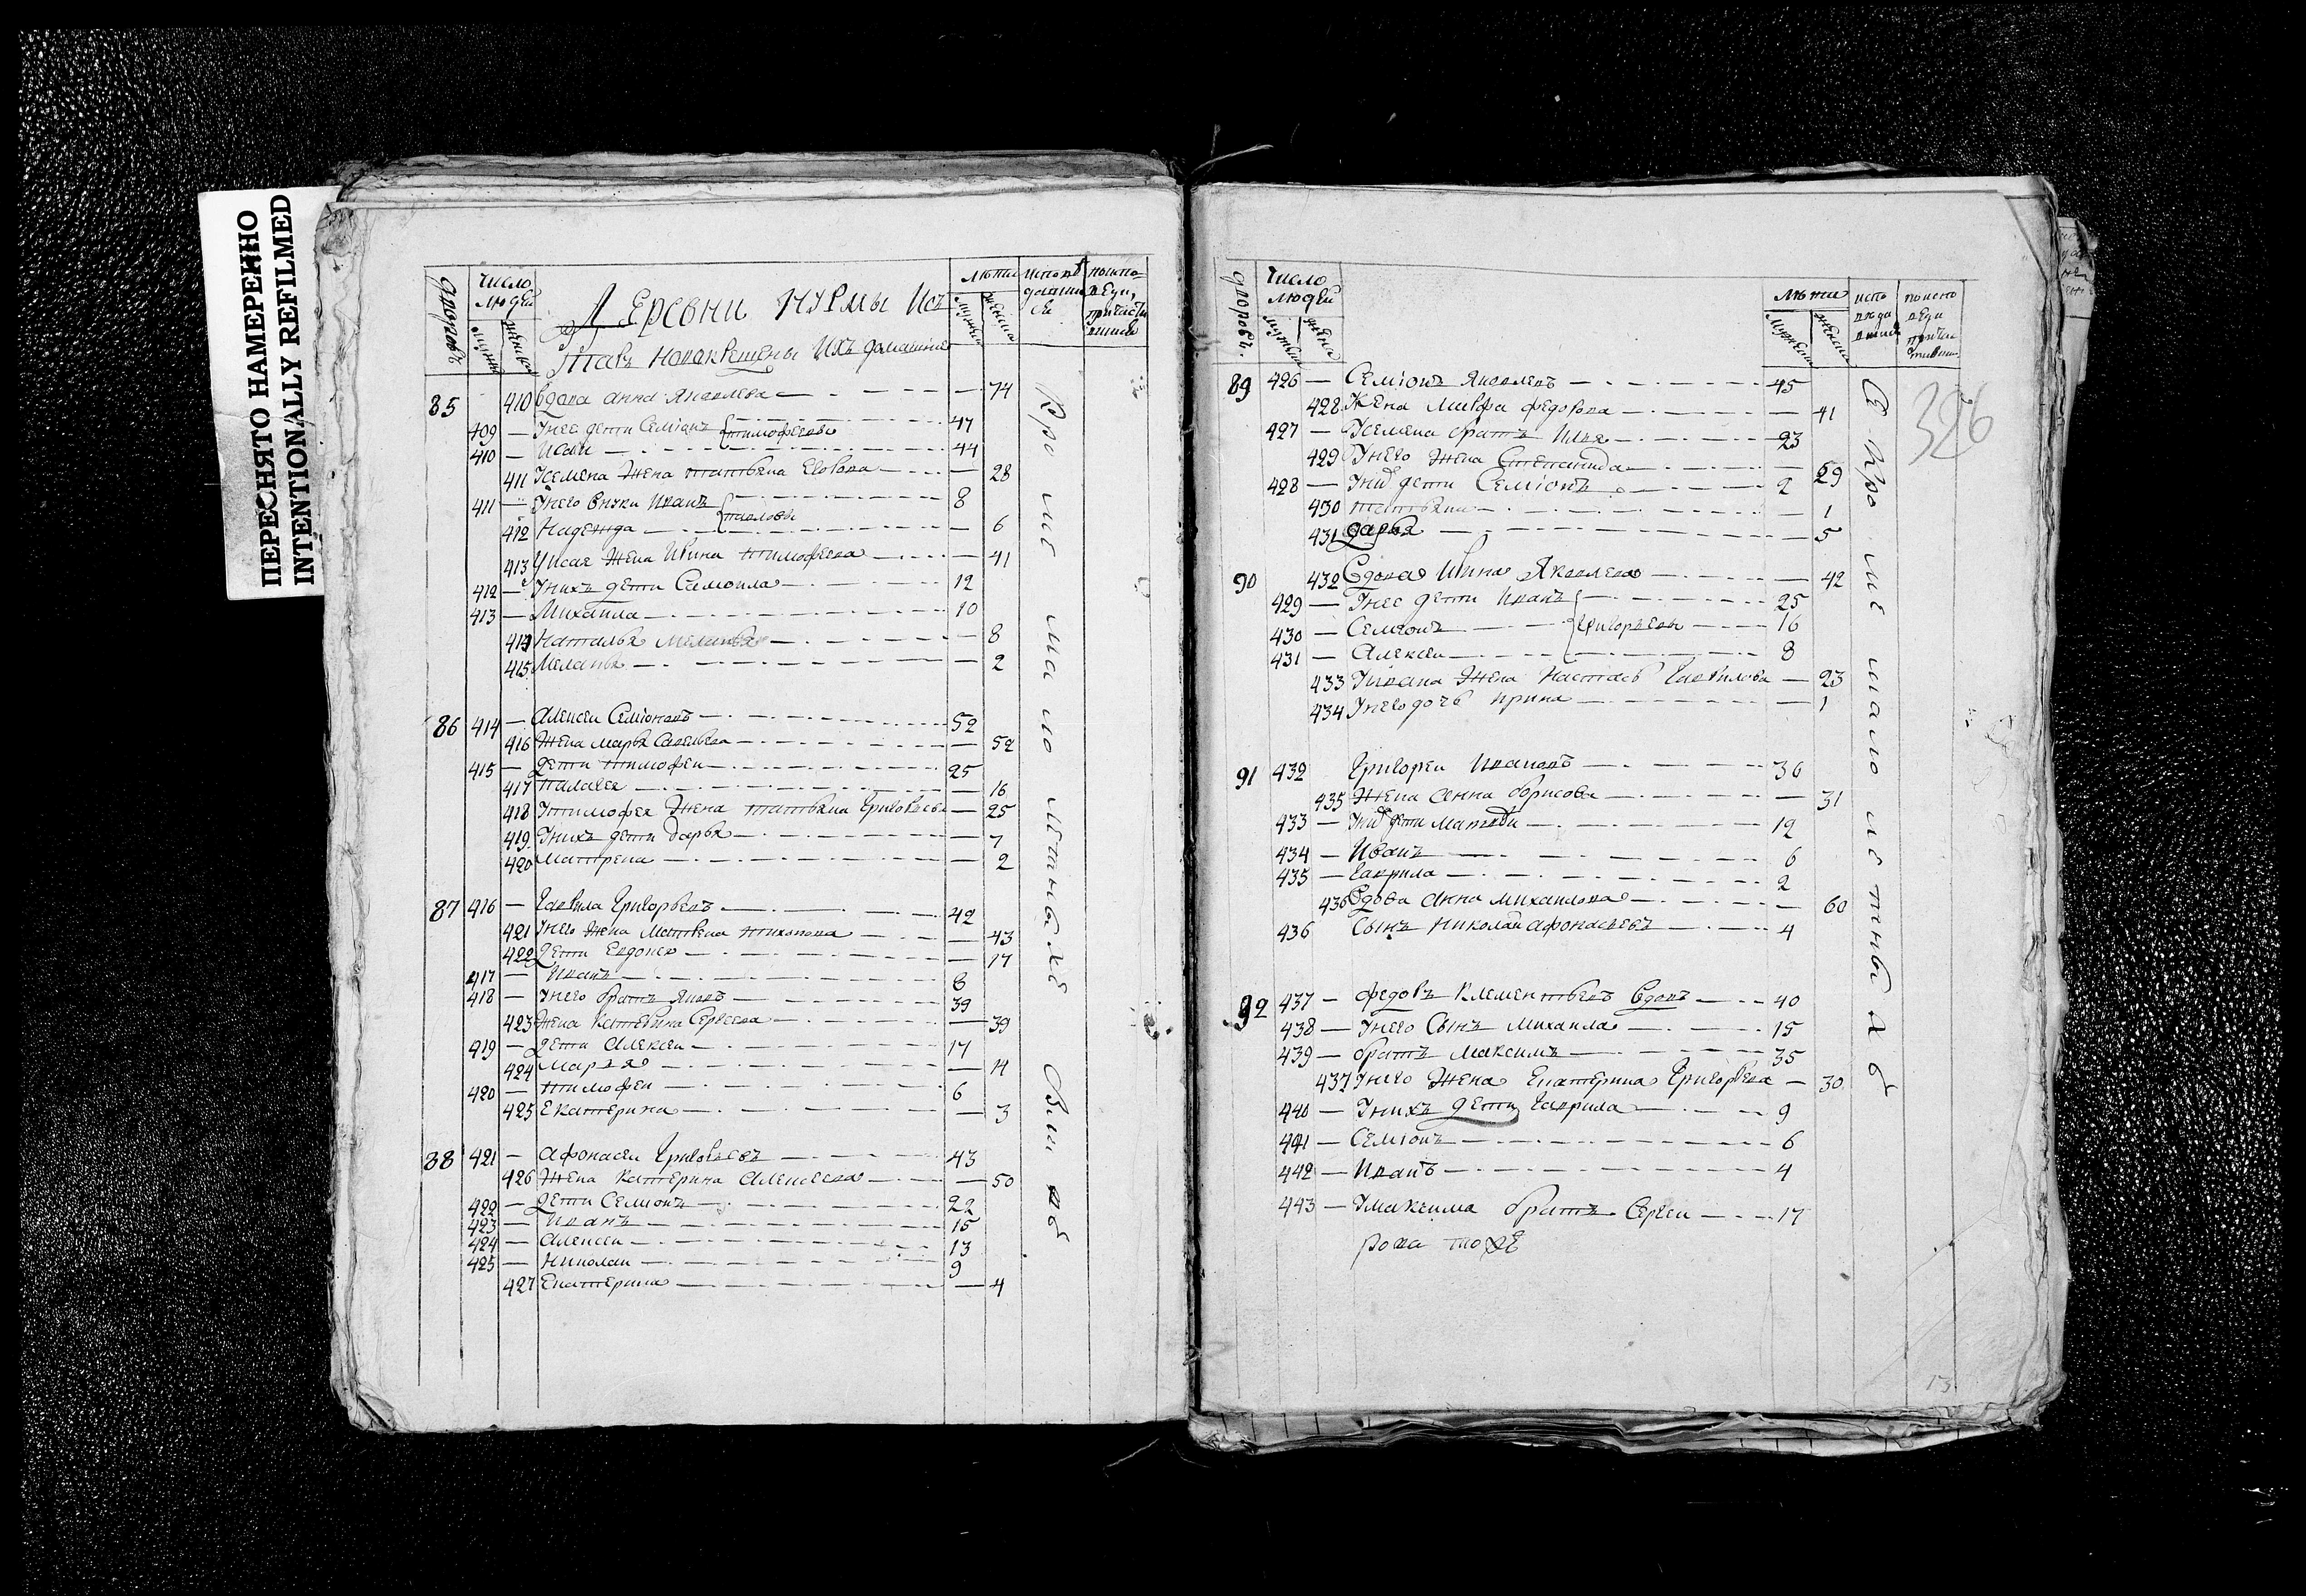 ПЕРЕСНЯТО НАМЕРЕННО
INTENTIONALLY REFILMED
дворовъ
Число
людей
мужес
женска
Деревни Нурмы Исъ
татъ новокрещены Ихъ домашние
лѣты
мужес
женска
85 410 вдова анна Яковлева 74
409 Унее дети Семіонъ тимофеевы 47
410 Исаи 44
411 Усемена жена татьяна Егорова 28
411 Унего внуки Иванъ павловы 8
412 Надежда 6
413 Уисая жена Ирина тимофеева 41
412 Унихъ дети Самоила 12
413 Михаила 10
414 Наталья меланья 8
415 Меланья 2
86 414 Алексеи Семіоновъ 52
416 жена марья Савельева 52
415 дети тимофеи 25
417 палагея 16
418 Утимофея жена татьяна Григорьева 25
419 Унихъ дети Дарья 7
420 матрена 2
87 416 Гаврила Григорьевъ 42
421 Унего жена Матрена тихонова 43
422 дети Евдокея 17
417 Иванъ 8
418 Унего братъ Яковъ 39
423 жена Катерина Сергеева 39
419 дети Алексеи 17
424 Марья 14
420 тимофеи 6
425 Екатерина 3
88 421 афонасеи Григорьевъ 43
426 жена катерина Алексеева 50
422 дети Семіонъ 22
423 Иванъ 15
424 алексеи 13
425 Николаи 9
427 Екатерина 4
Кро ме ма ло летныхъ
дворовъ.
Число
людей
мужеска
женска
лѣты
мужеска
женска
326
89 426 Семіонъ Яковлевъ 45
428 жена марфа федорова 41
427 Усемена братъ Илья 23
429 Унего жена Степанида 29
428 Унид дети Семіонъ 2
430 татьяна 1
431 дарья 5
90 432 вдова Ирина Яковлева 42
429 Унее дети Иванъ 25
430 Семіонъ Григорьевы 16
431 Алексеи 8
433 Уивана жена Настасья Гаврилова 23
434 Унегодочь ирина 1
91 432 Григореи Ивановъ 36
435 жена анна борисова 31
433 Унид дети Матвеи 12
434 Иванъ 6
435 Гаврила 2
436 вдова Анна михаилова 60
436 Сынъ николаи афонасьевъ 4
92 437 федоръ Клементьевъ вдовъ 40
438 Унего Сынъ михаила 15
439 братъ максимъ 35
437 Унего жена Екатерина Григорьева 30
440 Унихъ дети Гаврила 9
441 Семіонъ 6
442 Иванъ 4
443 Умаксима братъ Сергеи 17
рова тоже
Кро ме мало летныхъ
13